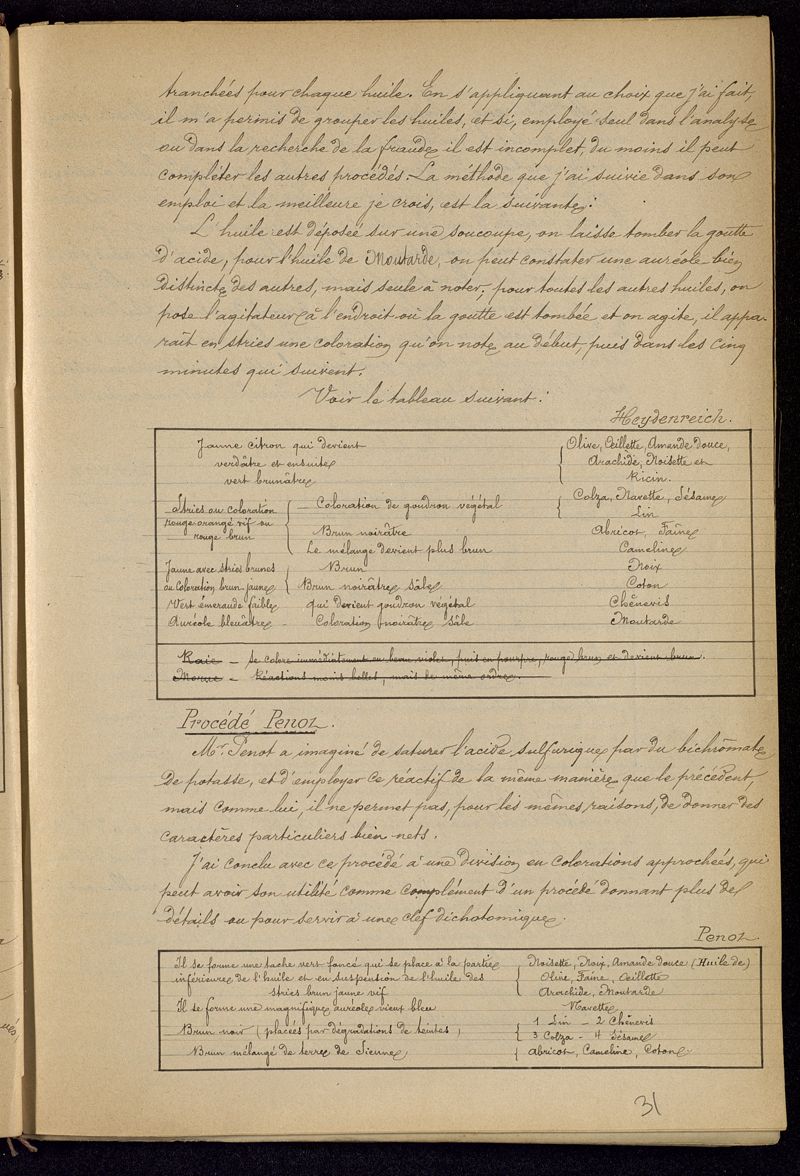 tranchées pour chaque huile. En s'appliquant au choix que j'ai fait,
il m'a permis de grouper les huiles, et si, employé seul dans l'analyse
ou dans la recherche de la fraude il est incomplet, du moins il peut
compléter les autres procédés. La méthode que j'ai suivie dans son
emploi et la meilleure je crois, est la suivante:
L'huile est déposée sur une soucoupe, on laisse tomber la goutte
d'acide, pour l'huile de Moutarde, on peut constater une auréole bien
distincte des autres, mais seule à noter; pour toutes les autres huiles, on
pose l'agitateur à l'endroit où la goutte est tombée et on agite, il appa-
raît en stries une coloration qu'on note au début, puis dans les cinq
minutes qui suivent.
Voir le tableau suivant:
Heydenreich.
Jaune citron qui devient
verdâtre et ensuite
vert brunâtre
Olive, Œillette, Amande douce,
Arachide, Noisette et
Ricin.
Stries ou coloration
rouge orangé vif ou
rouge brun
Coloration de goudron végétal
Colza, Navette, Sésame
Lin
Brun noirâtre
Abricot, Faîne
Le mélange devient plus brun
Cameline
Jaune avec stries brunes
ou coloration brun jaune
Brun
Noix
Brun noirâtre sâle
Coton
Vert émeraude faible
qui devient goudron végétal
Chênevis
Auréole bleuâtre -
Coloration noirâtre sâle
Moutarde
Raie - se colore immédiatement en beau violet, puis en pourpre, rouge brun et devient brun.
Morue - Réactions moins belles, mais de même ordre.
Procédé Penot.
Mr. Penot a imaginé de saturer l'acide sulfurique par du bichrômate
de potasse, et d'employer ce réactif de la même manière que le précédent,
mais comme lui, il ne permet pas, pour les mêmes raisons, de donner des
caractères particuliers bien nets.
J'ai conclu avec ce procédé à une division en colorations approchées, qui
peut avoir son utilité comme complément d'un procédé donnant plus de
détails ou pour servir à une clef dichotomique.
Penot.
Il se forme une tache vert foncé qui se place à la partie
inférieure de l'huile et en suspension de l'huile des
stries brun jaune vif
Noisette, Noix, Amande douce (Huile de)
Olive, Faîne, Œillette
Arachide, Moutarde
Il se forme une magnifique auréole vieux bleu
Navette
Brun noir (placées par dégradations de teintes)
1 Lin - 2 Chênevis
3 Colza - 4 Sésame
Brun mélangé de terre de Sienne
Abricot, Cameline, Coton
31